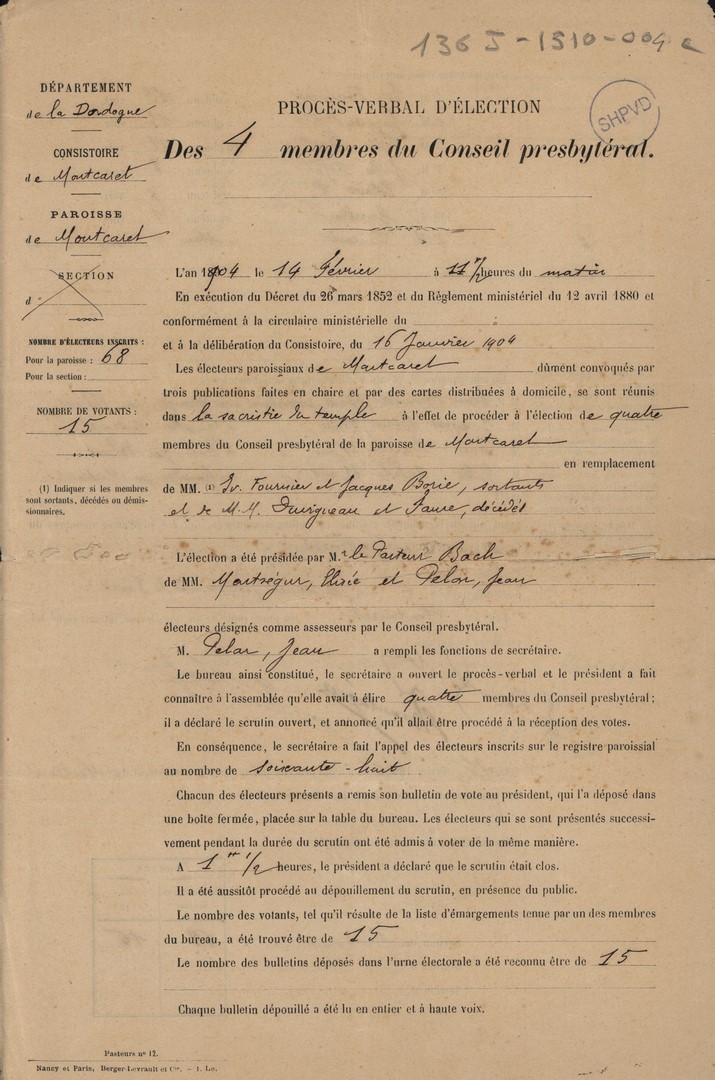 136 J-1510-004 c
DÉPARTEMENT
de la Dordogne
CONSISTOIRE
de Montcaret
PAROISSE
de Montcaret
SECTION
d
NOMBRE D'ÉLECTEURS INSCRITS :
Pour la paroisse : 68
Pour la section :
NOMBRE DE VOTANTS :
15
(1) Indiquer si les membres
sont sortants, décédés ou démis-
sionnaires.
SHPVD
PROCÈS-VERBAL D'ÉLECTION
Des 4 membres du Conseil presbytéral.
L'an 1904 le 14 Février à 11 h 1/2 heures du matin
En exécution du Décret du 26 mars 1852 et du Règlement ministériel du 12 avril 1880 et
conformément à la circulaire ministérielle du
et à la délibération du Consistoire, du 16 Janvier 1904
Les électeurs paroissiaux de Montcaret dûment convoqués par
trois publications faites en chaire et par des cartes distribuées à domicile, se sont réunis
dans la sacristie du temple à l'effet de procéder à l'élection de quatre
membres du Conseil presbytéral de la paroisse de Montcaret
en remplacement
de MM. (1) Fournier et Jacques Borie, sortants
et de M.M. et Faure, décédés
L'élection a été présidée par M. le Pasteur Bach
de MM. Montségur, et Pelon, Jean
électeurs désignés comme assesseurs par le Conseil presbytéral.
M. Jean a rempli les fonctions de secrétaire.
Le bureau ainsi constitué, le secrétaire a ouvert le procès-verbal et le président a fait
connaître à l'assemblée qu'elle avait à élire quatre membres du Conseil presbytéral ;
il a déclaré le scrutin ouvert, et annoncé qu'il allait être procédé à la réception des votes.
En conséquence, le secrétaire a fait l'appel des électeurs inscrits sur le registre paroissial
au nombre de soixante-huit
Chacun des électeurs présents a remis son bulletin de vote au président, qui l'a déposé dans
une boîte fermée, placée sur la table du bureau. Les électeurs qui se sont présentés successi-
vement pendant la durée du scrutin ont été admis à voter de la même manière.
A 1 h 1/2 heures, le président a déclaré que le scrutin était clos.
Il a été aussitôt procédé au dépouillement du scrutin, en présence du public.
Le nombre des votants, tel qu'il résulte de la liste d'émargements tenue par un des membres
du bureau, a été trouvé être de 15
Le nombre des bulletins déposés dans l'urne électorale a été reconnu être de 15
Chaque bulletin dépouillé a été lu en entier et à haute voix.
Pasteurs n° 12.
Nancy et Paris, Berger-Levrault et Cie. – 1. Lo.